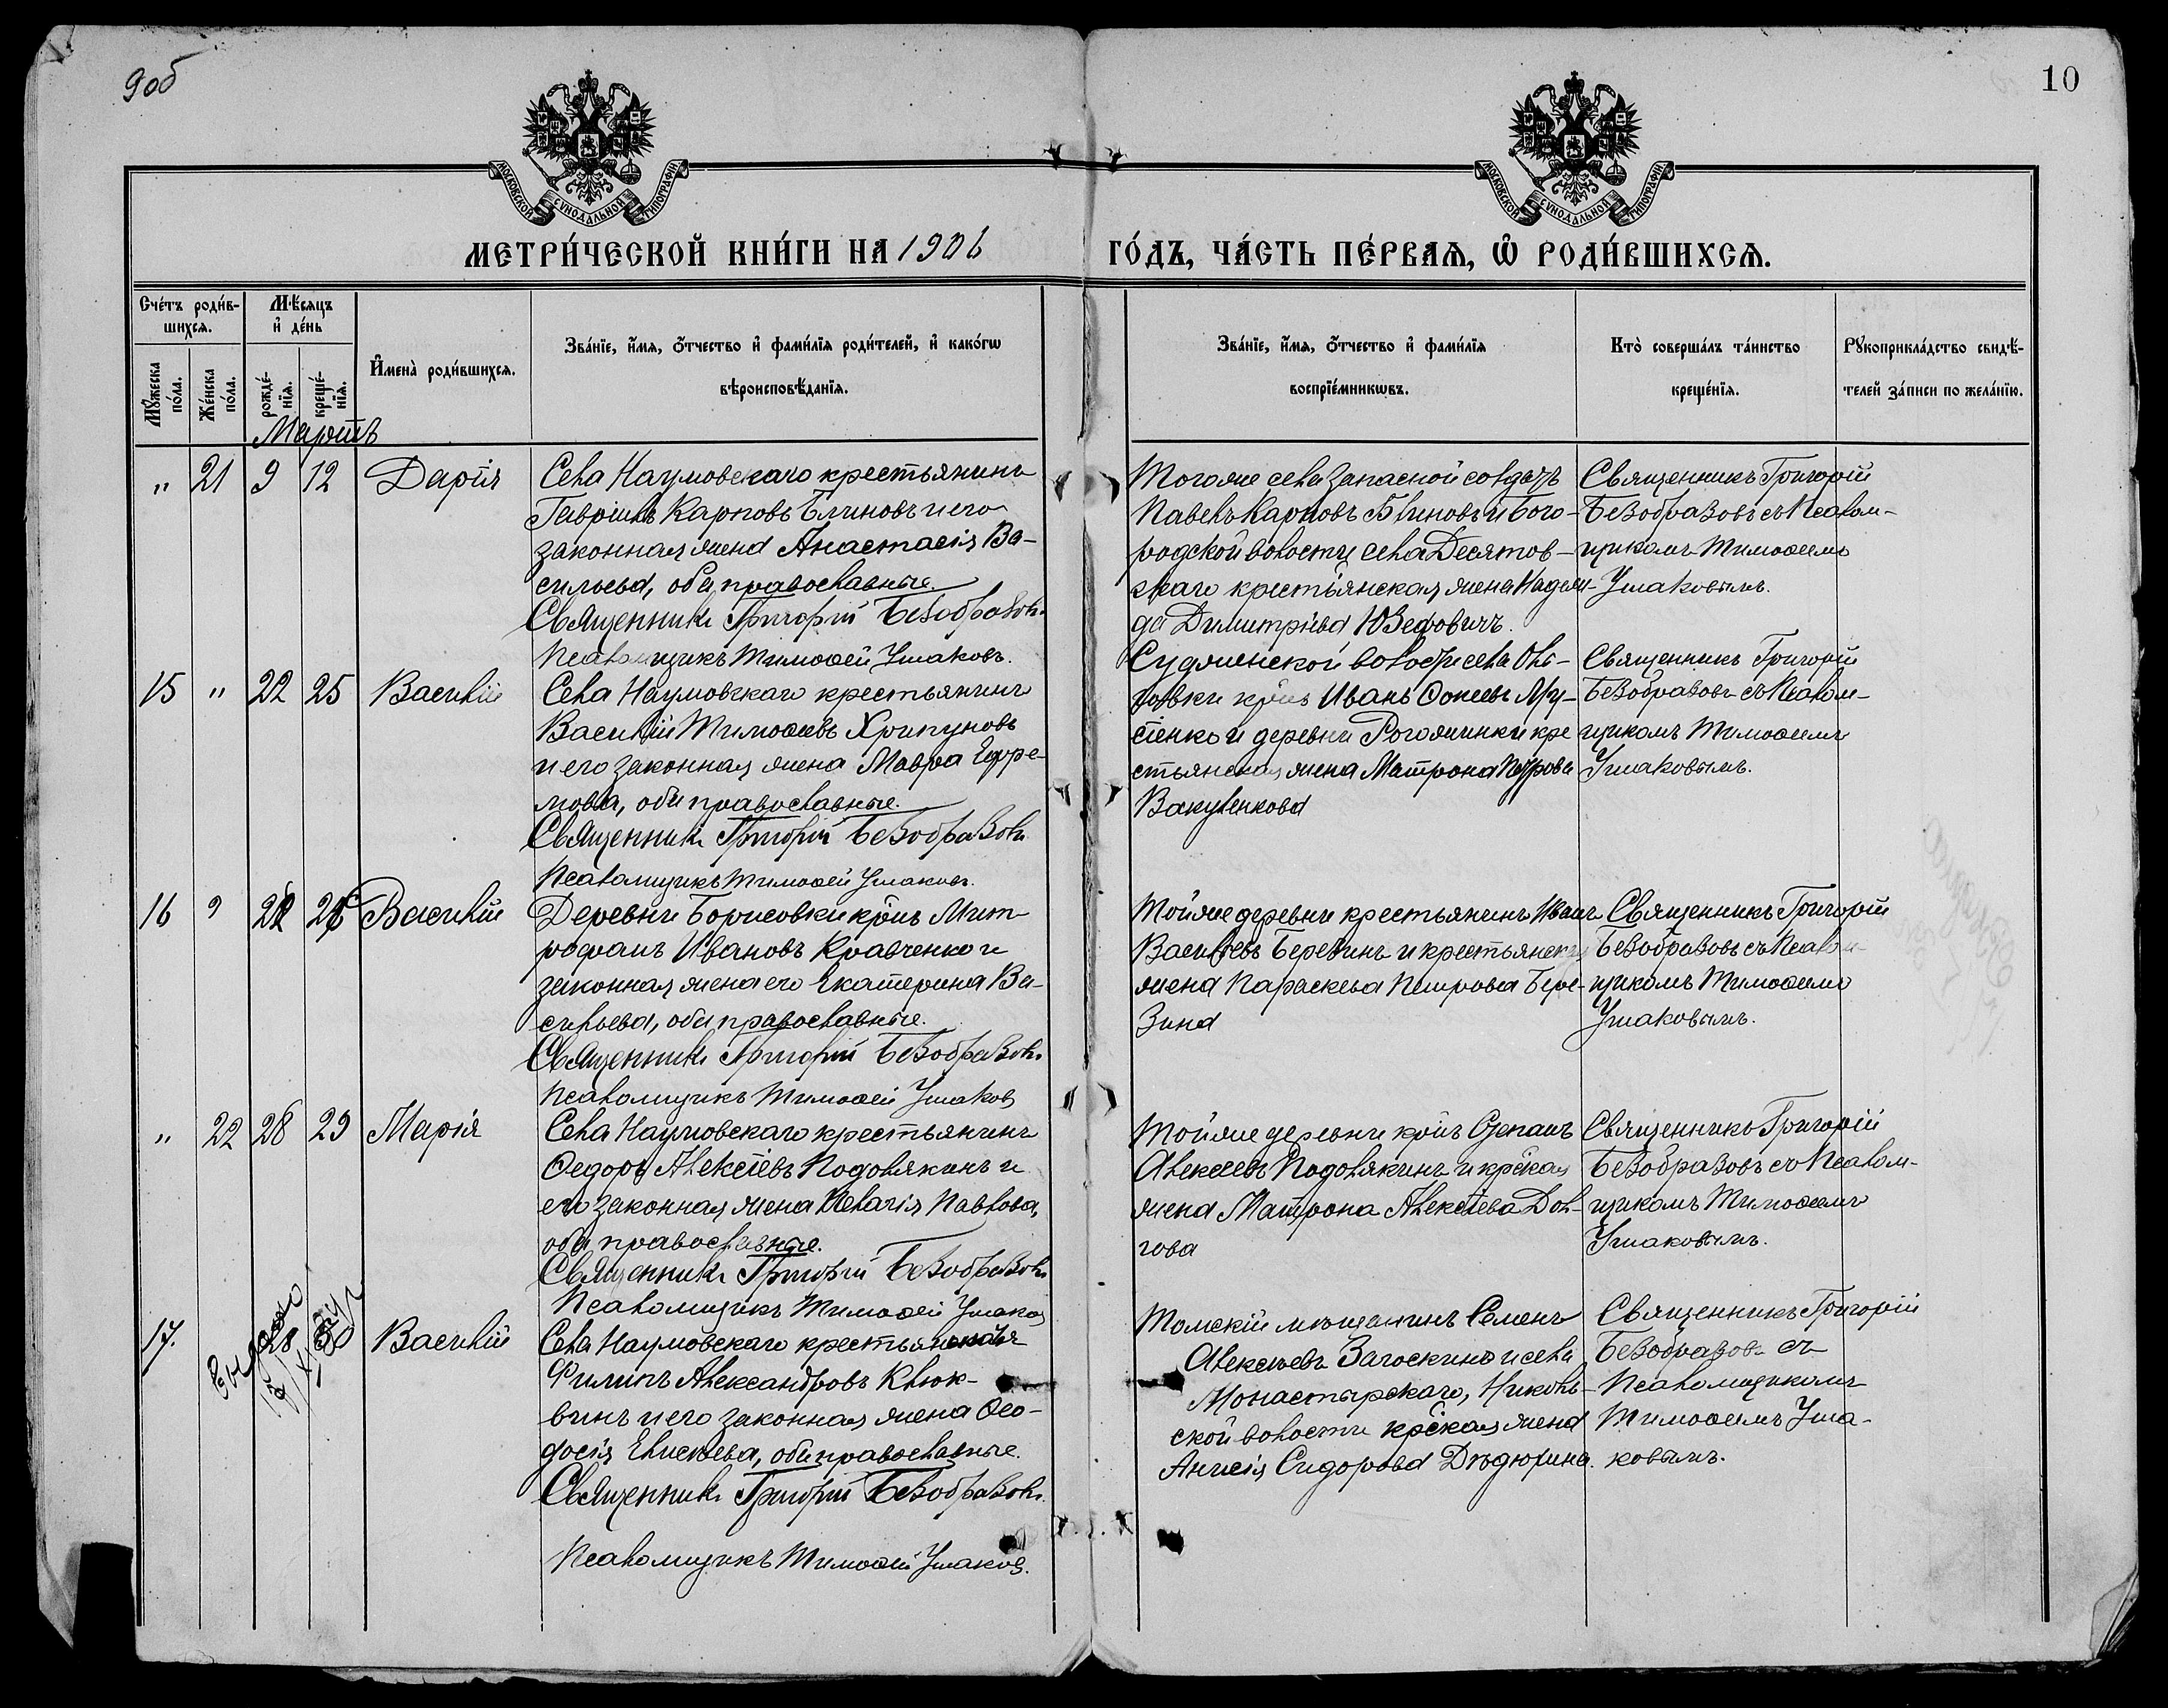 9об
10
МОСКОВСКОЙ СѴНОДАЛЬНОЙ ТИПОГРАФІИ
МОСКОВСКОЙ СѴНОДАЛЬНОЙ ТИПОГРАФІИ
МЕТРИ́ЧЕСКОЙ КНИ́ГИ НА 1906 ГО́ДЪ, ЧА́СТЬ ПЕ́РВАѦ, Ѡ҆ РОДИ́ВШИХСѦ.
Счётъ роди́в-
шихсѧ.
Мꙋ́жеска по́ла.
Же́нска по́ла.
Мѣ́сѧцъ
и҆ де́нь
рожде́-
нїѧ.
креще́-
нїѧ.
И҆мена̀ роди́вшихсѧ.
Зва́нїе, и҆́мѧ, ѻ҆́тчество и҆ фами́лїѧ роди́телей, и҆ како́гѡ
вѣроисповѣ́данїѧ.
Зва́нїе, и҆́мѧ, ѻ҆́тчество и҆ фами́лїѧ
воспрїе́мникѡвъ.
Кто̀ соверша́лъ та́инство
креще́нїѧ.
Рꙋкоприкла́дство свидѣ́-
телей за́писи по жела́нїю.
Мартъ
" 21 9 12 Дарія
Села Наумовскаго крестьянинъ
Гавріилъ Карповъ Блиновъ и его
законная жена Анастасія Ва-
сильева, оба православные.
Священникъ Григорій Безобразовъ
Псаломщикъ Тимофей Ушаковъ.
Тогоже села запасной солдатъ
Павелъ Карповъ Блиновъ и Бого-
родской волости села Десятов-
скаго крестьянская жена Надеж-
да Димитріева Юзефовичъ.
Священникъ Григорій
Безобразовъ съ Псалом-
щикомъ Тимофеемъ
Ушаковымъ.
15 " 22 25 Василій
Села Наумовскаго крестьянинъ
Василій Тимофеевъ Хрипуновъ
и его законная жена Мавра Ефре-
мова, оба православные.
Священникъ Григорій Безобразовъ
Псаломщикъ Тимофей Ушаковъ.
Судженской волости села Оль-
говки Иванъ
и деревни Рогожинки кре
стьянская жена Матрона Петрова
Вакуленкова
Священникъ Григорій
Безобразовъ съ Псалом-
щикомъ Тимофеемъ
Ушаковымъ.
16 Василій
Деревни Борисовки крнъ Мит-
рофанъ Ивановъ Кравченко и
законная жена его Екатерина Ва-
сильева, оба православные.
Священникъ Григорій Безобразовъ
Псаломщикъ Тимофей Ушаковъ
Тойже деревни крестьянинъ Иванъ
Васильевъ Березинъ и крестьянская
жена Параскева Петрова Бере-
зина
Священникъ Григорій
Безобразовъ съ Псалом-
щикомъ Тимофеемъ
Ушаковымъ.
" 22 28 29 Марія
Села Наумовскаго крестьянинъ
Федоръ Алексѣевъ Подолякинъ и
его законная жена Пелагія Павлова,
оба православные.
Священникъ Григорій Безобразовъ
Псаломщикъ Тимофей Ушаковъ
Тойже деревни крнъ Степанъ
Алексеевъ Подолякинъ и крская
жена Матрона Алексѣева Дол-
гова
Священникъ Григорій
Безобразовъ съ Псалом-
щикомъ Тимофеемъ
Ушаковымъ.
Выдано
17. 28 30 Василій
Села Наумовскаго
Филипъ Александровъ Клюк-
винъ и его законная жена Фео-
досія Елисеева, оба православные.
Священникъ Григорій Безобразовъ.
Псаломщикъ Тимофей Ушаковъ.
Томскій мѣщанинъ Семенъ
Алексеевъ Загоскинъ и села
Монастырскаго, Николь-
ской волости крская жена
Анисія Сидорова Дѣдюрина.
Священникъ Григорій
Безобразовъ съ
Псаломщикомъ
Тимофеемъ Уша-
ковымъ.